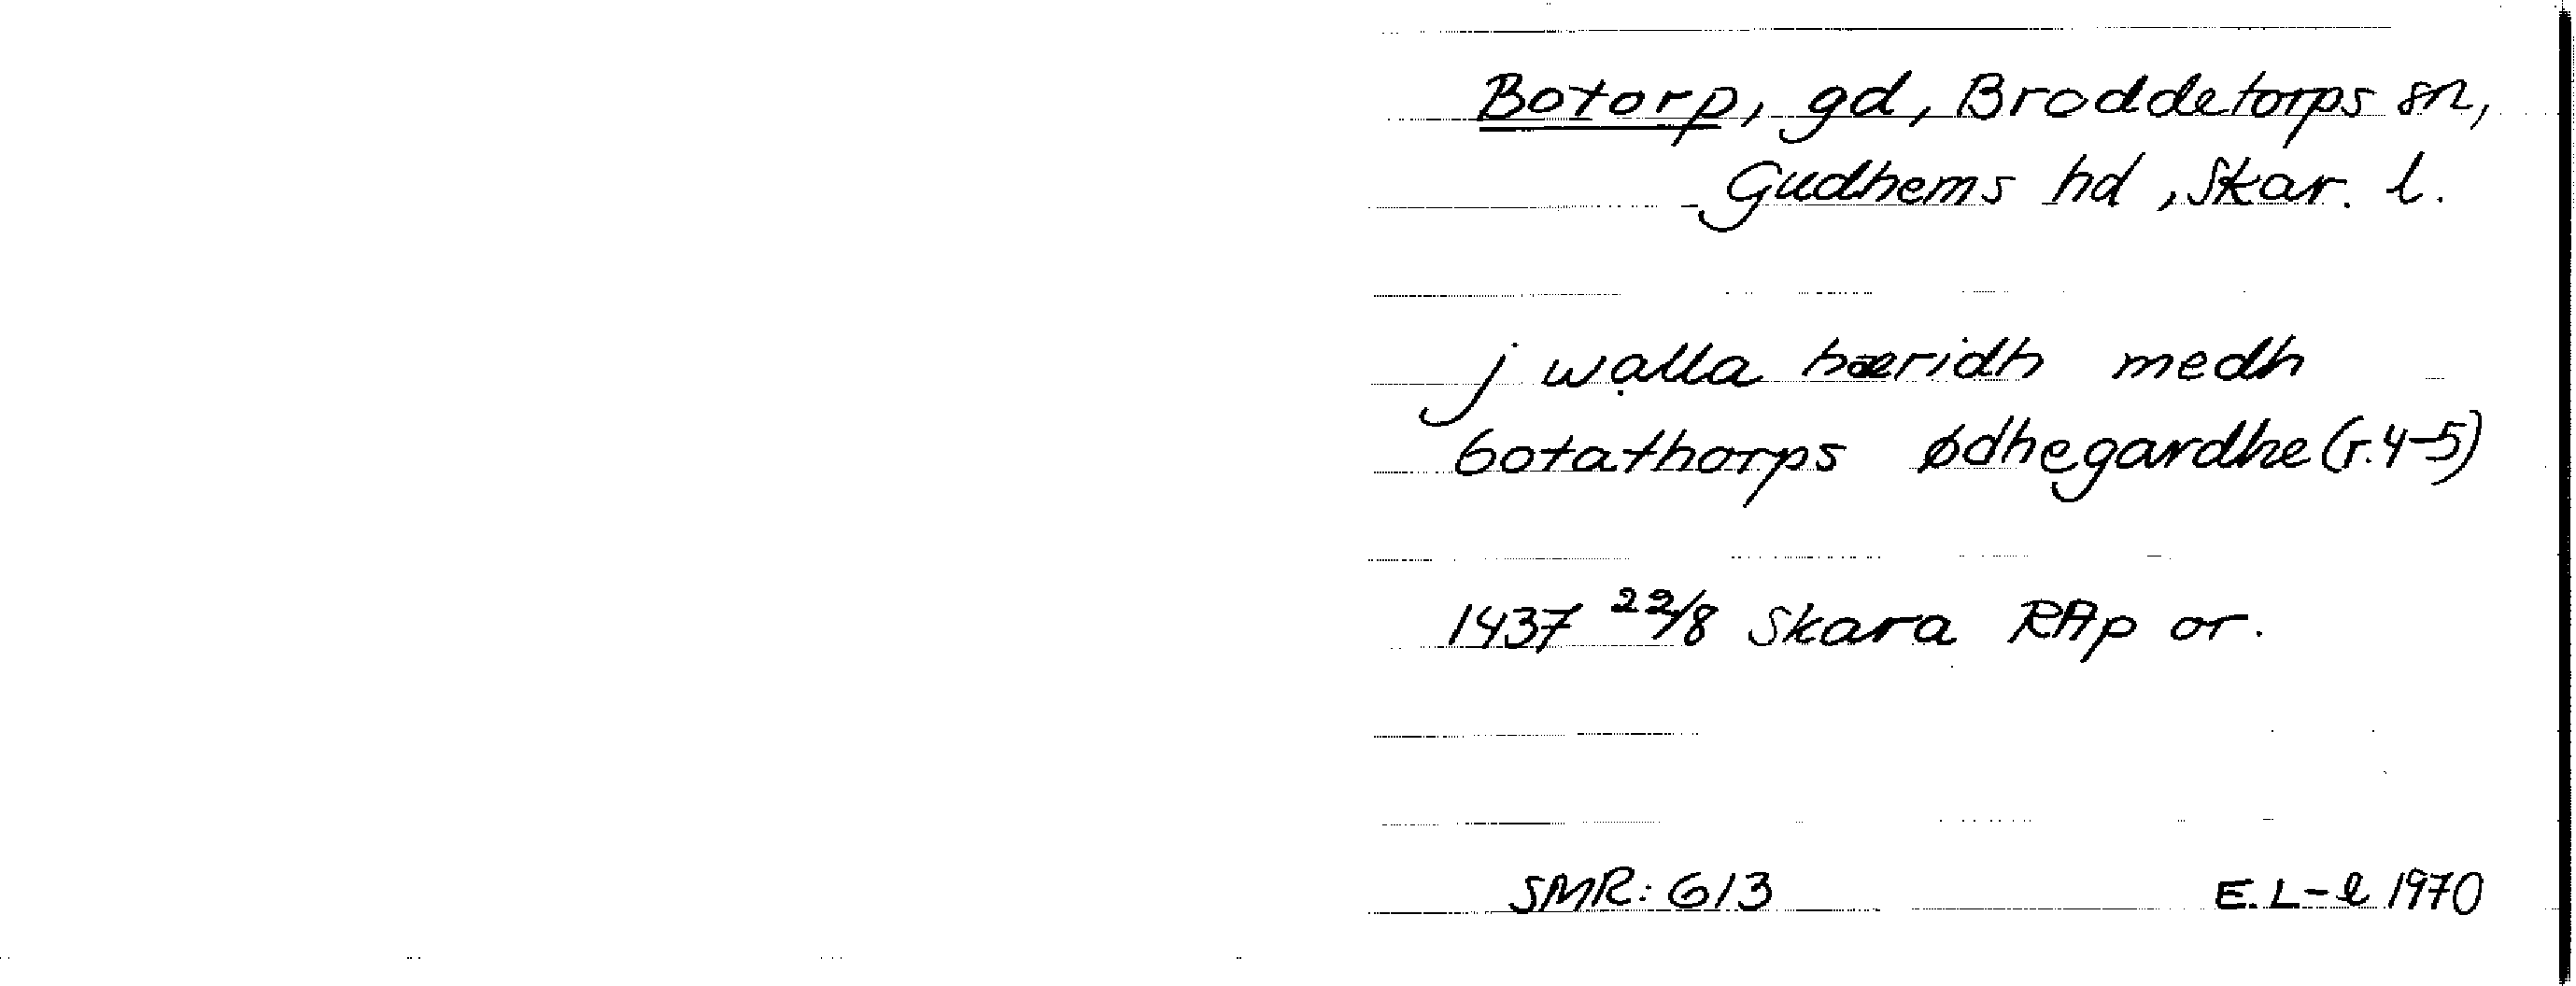 Botorp, gd, Broddetorps sn,
Gudhems hd, Skar. l.
j walla hæridh medh
botathorps ødhegardhe (r. 4-5)
1437 22/8 Skara RAp or.
SMR: 613 E. L-l 1970